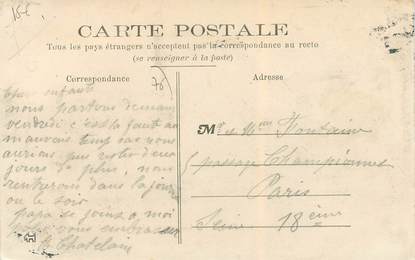 15€
CARTE POSTALE
Tous les pays étrangers n'acceptent pas la correspondance au recto
(se renseigner à la poste)
Correspondance
Adresse
70
Chers enfants
nous partons demain
vendredi c'est la faute au
mauvais temps car nous
aurions pu rester deux
jours de plus, nous
rentrerons dans la journée
ou le soir
papa se joins a moi
vous embrasser
Chatelain
M et Mme Fontaine
passage Championnet
Paris
Seine 18ème